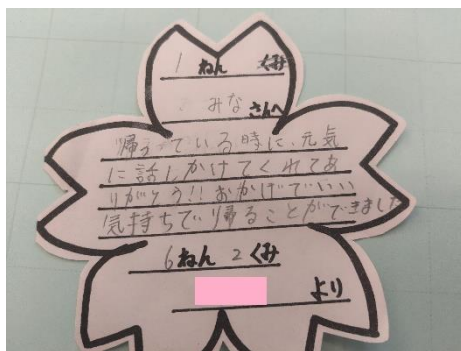 1 ねん くみ
みな さんへ
帰っている時に、元気
に話しかけてくれてあ
りがとう!!おかげでいい
気持ちで帰ることができました
6ねん 2くみ
より